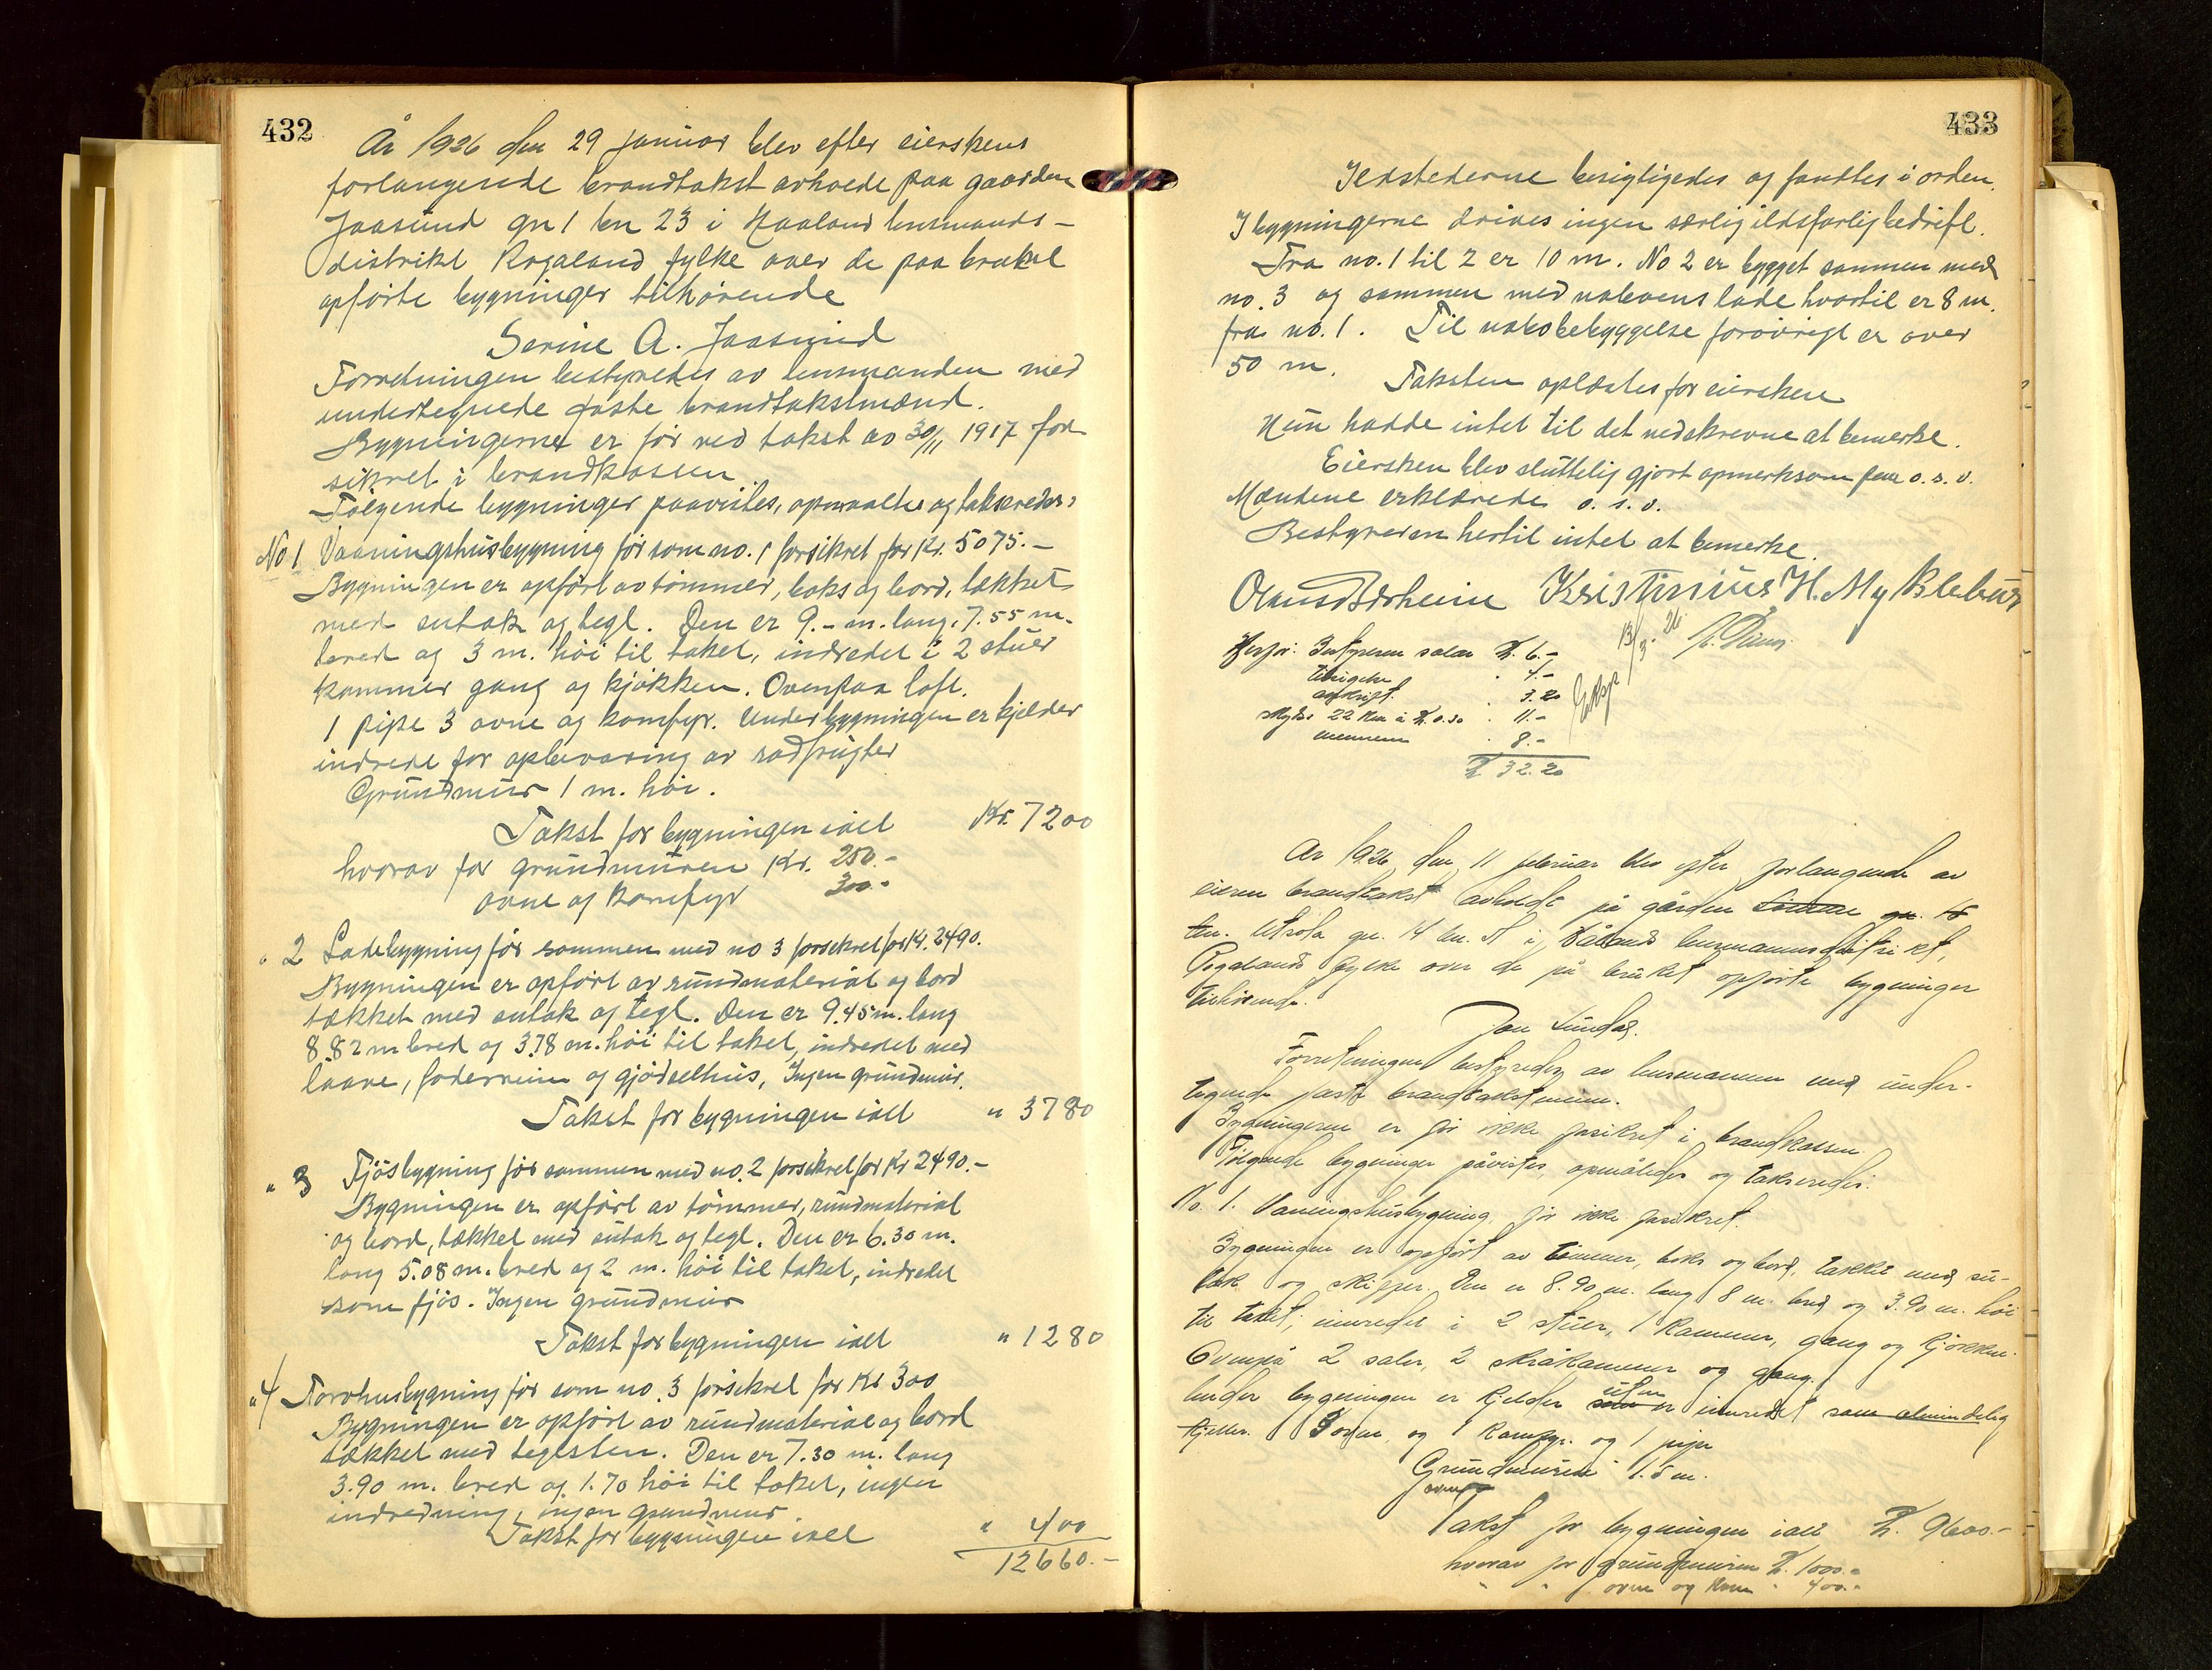 432
År 1926 den 29 januar blev efter eierskens
forlangende brandtakst avholdt paa gaarden
Jaasund gn 1 bn 23 i Haaland lensmands-
distrikt Rogaland fylke over de paa bruket
opførte bygninger tilhørende
Serine A. Jaasund
Forretningen bestyredes av lensmanden med
undertegnede faste brandtakstmænd.
Bygningerne er før ved takst av 30/11 1917 for
sikret i brandkassen.
Følgende bygninger paavistes, opmaaltes og takseredes:
No 1 Vaaningshusbygning før som no. 1 forsikret for Kr. 5075.-
Bygningen er opført av tømmer, boks og bord, tækket
med sutak og tegl. Den er 9.- m. lang, 7.55 m.
bred og 3 m. høi til taket, indredet i 2 stuer
kammer gang og kjøkken. Ovenpaa loft.
1 pipe 3 ovne og komfyr. Under bygningen er kjelder
indrede for opbevaring av rodfrugter
Grundmur 1 m. høi.
Takst for bygningen ialt Kr. 7200
hvorav for grundmuren Kr. 250.-
ovne og komfyr 300.-
" 2 Ladebygning før sammen med no 3 forsikret for Kr. 2490.
Bygningen er opført av rundmaterial og bord
tækket med sutak og tegl. Den er 9.45 m. lang
8.82 m bred og 3.78 m. høi til taket, indredet med
laave, foderrum og gjødselhus, Ingen grundmur.
Takst for bygningen ialt " 3780
" 3 Fjøsbygning før sammen med no. 2 forsikret for Kr 2490.-
Bygningen er opført av tømmer, rundmaterial
og bord, tækket med sutak og tegl. Den er 6.30 m.
lang 5.08 m. bred og 2 m. høi til taket, indredet
som fjøs. Ingen grundmur
Takst for bygningen ialt " 1280
" 4 Torvhusbygning før som no 3 forsikret for Kr 300
Bygningen er opført av rundmaterial og bord
tækket med teglsten. Den er 7.30 m. lang
3.90 m. bred og 1.70 høi til taket, ingen
indredning, ingen grundmur
Takst for bygningen ialt " 400
12660.-
433
Ildstederne besigtigedes og fandtes i orden.
I bygningerne drives ingen særlig ildsfarlig bedrift.
Fra no. 1 til 2 er 10 m. No 2 er bygget sammen med
no. 3 og sammen med naboens lade hvortil er 8 m.
fra no. 1. Til nabobebyggelse forøvrigt er over
50 m.
Taksten oplæstes for eiersken
Hun hadde intet til det nedskrevne at bemerke.
Eiersken blev sluttelig gjort opmerksom paa o. s. v.
Mændene erklærede o. s. v.
Bestyreren hertil intet at bemerke.
Kristinius H. Myklebust
Herfor: Bestyreren salær Kr. 6.-
4.-
avskrift. " 3.20
Skyds 22 km à Kr. 0.50 " 11.-
mennene " 8.-
Kr. 32.20
13/3. 26
År 1926 den 11 februar blev efter forlangende av
eieren brandtakst avholdt på gården Sømme gn. 15
bn. gn. 14 bn. i Håland lensmannsdistrikt,
Rogaland fylke over de på bruket opførte bygninger
tilhørende.
Forretningen bestyredes av lensmannen med under-
tegnede faste brandtakstmenn.
Bygningerne er før ikke forsikret i brandkassen.
Følgende bygninger påvistes, opmåltes og takseredes:
No. 1. Vaningshusbygning, før ikke forsikret.
Bygningen er opført av tømmer, boks og bord, tækket med su-
tak og skifer. Den er 8.90 m. lang 8 m. bred og 3.90 m. høi
til taket, innredet i 2 stuer, 1 kammer, gang og kjøkken.
Ovenpå 2 saler, 2 skråkammer og gang.
Under bygningen er kjelder uten innredet som almindelig
kjeller. 3 ovne og 1 komfyr. og 1 pipe
Grundmuren 1.5 m.
Takst for bygningen ialt Kr. 9600.-
hvorav for grundmuren Kr. 1000.-
" " ovne og kom " 400.-